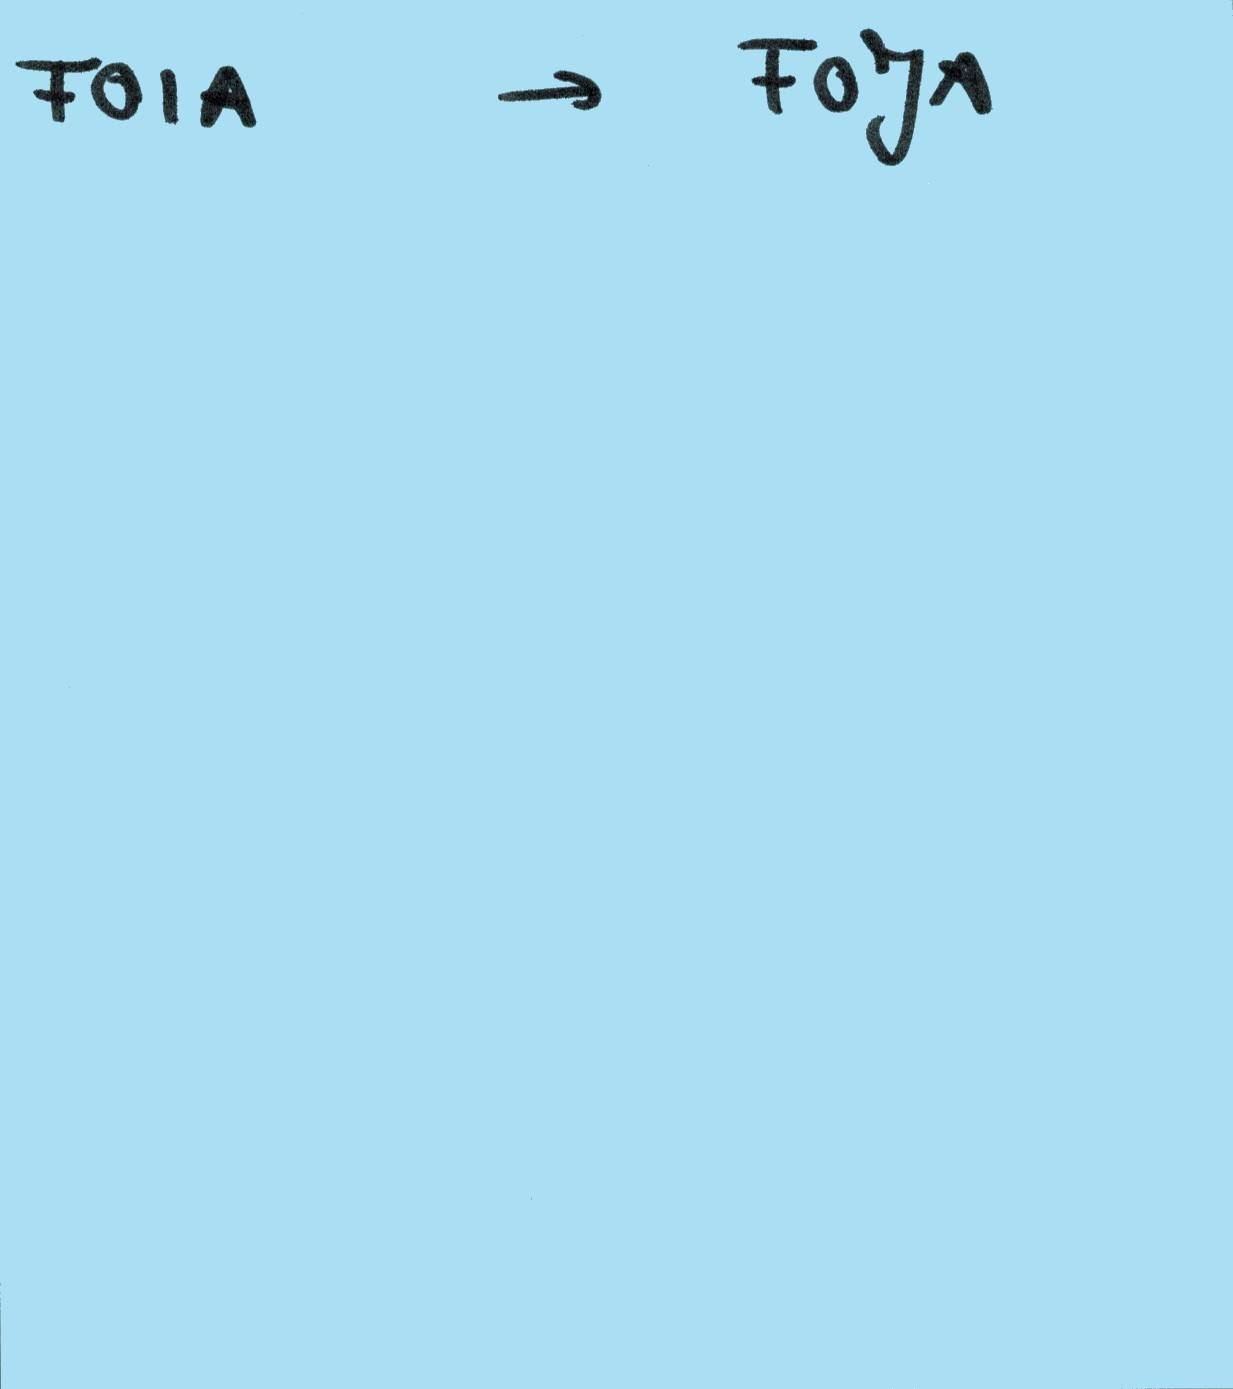 FOIA → FOYA